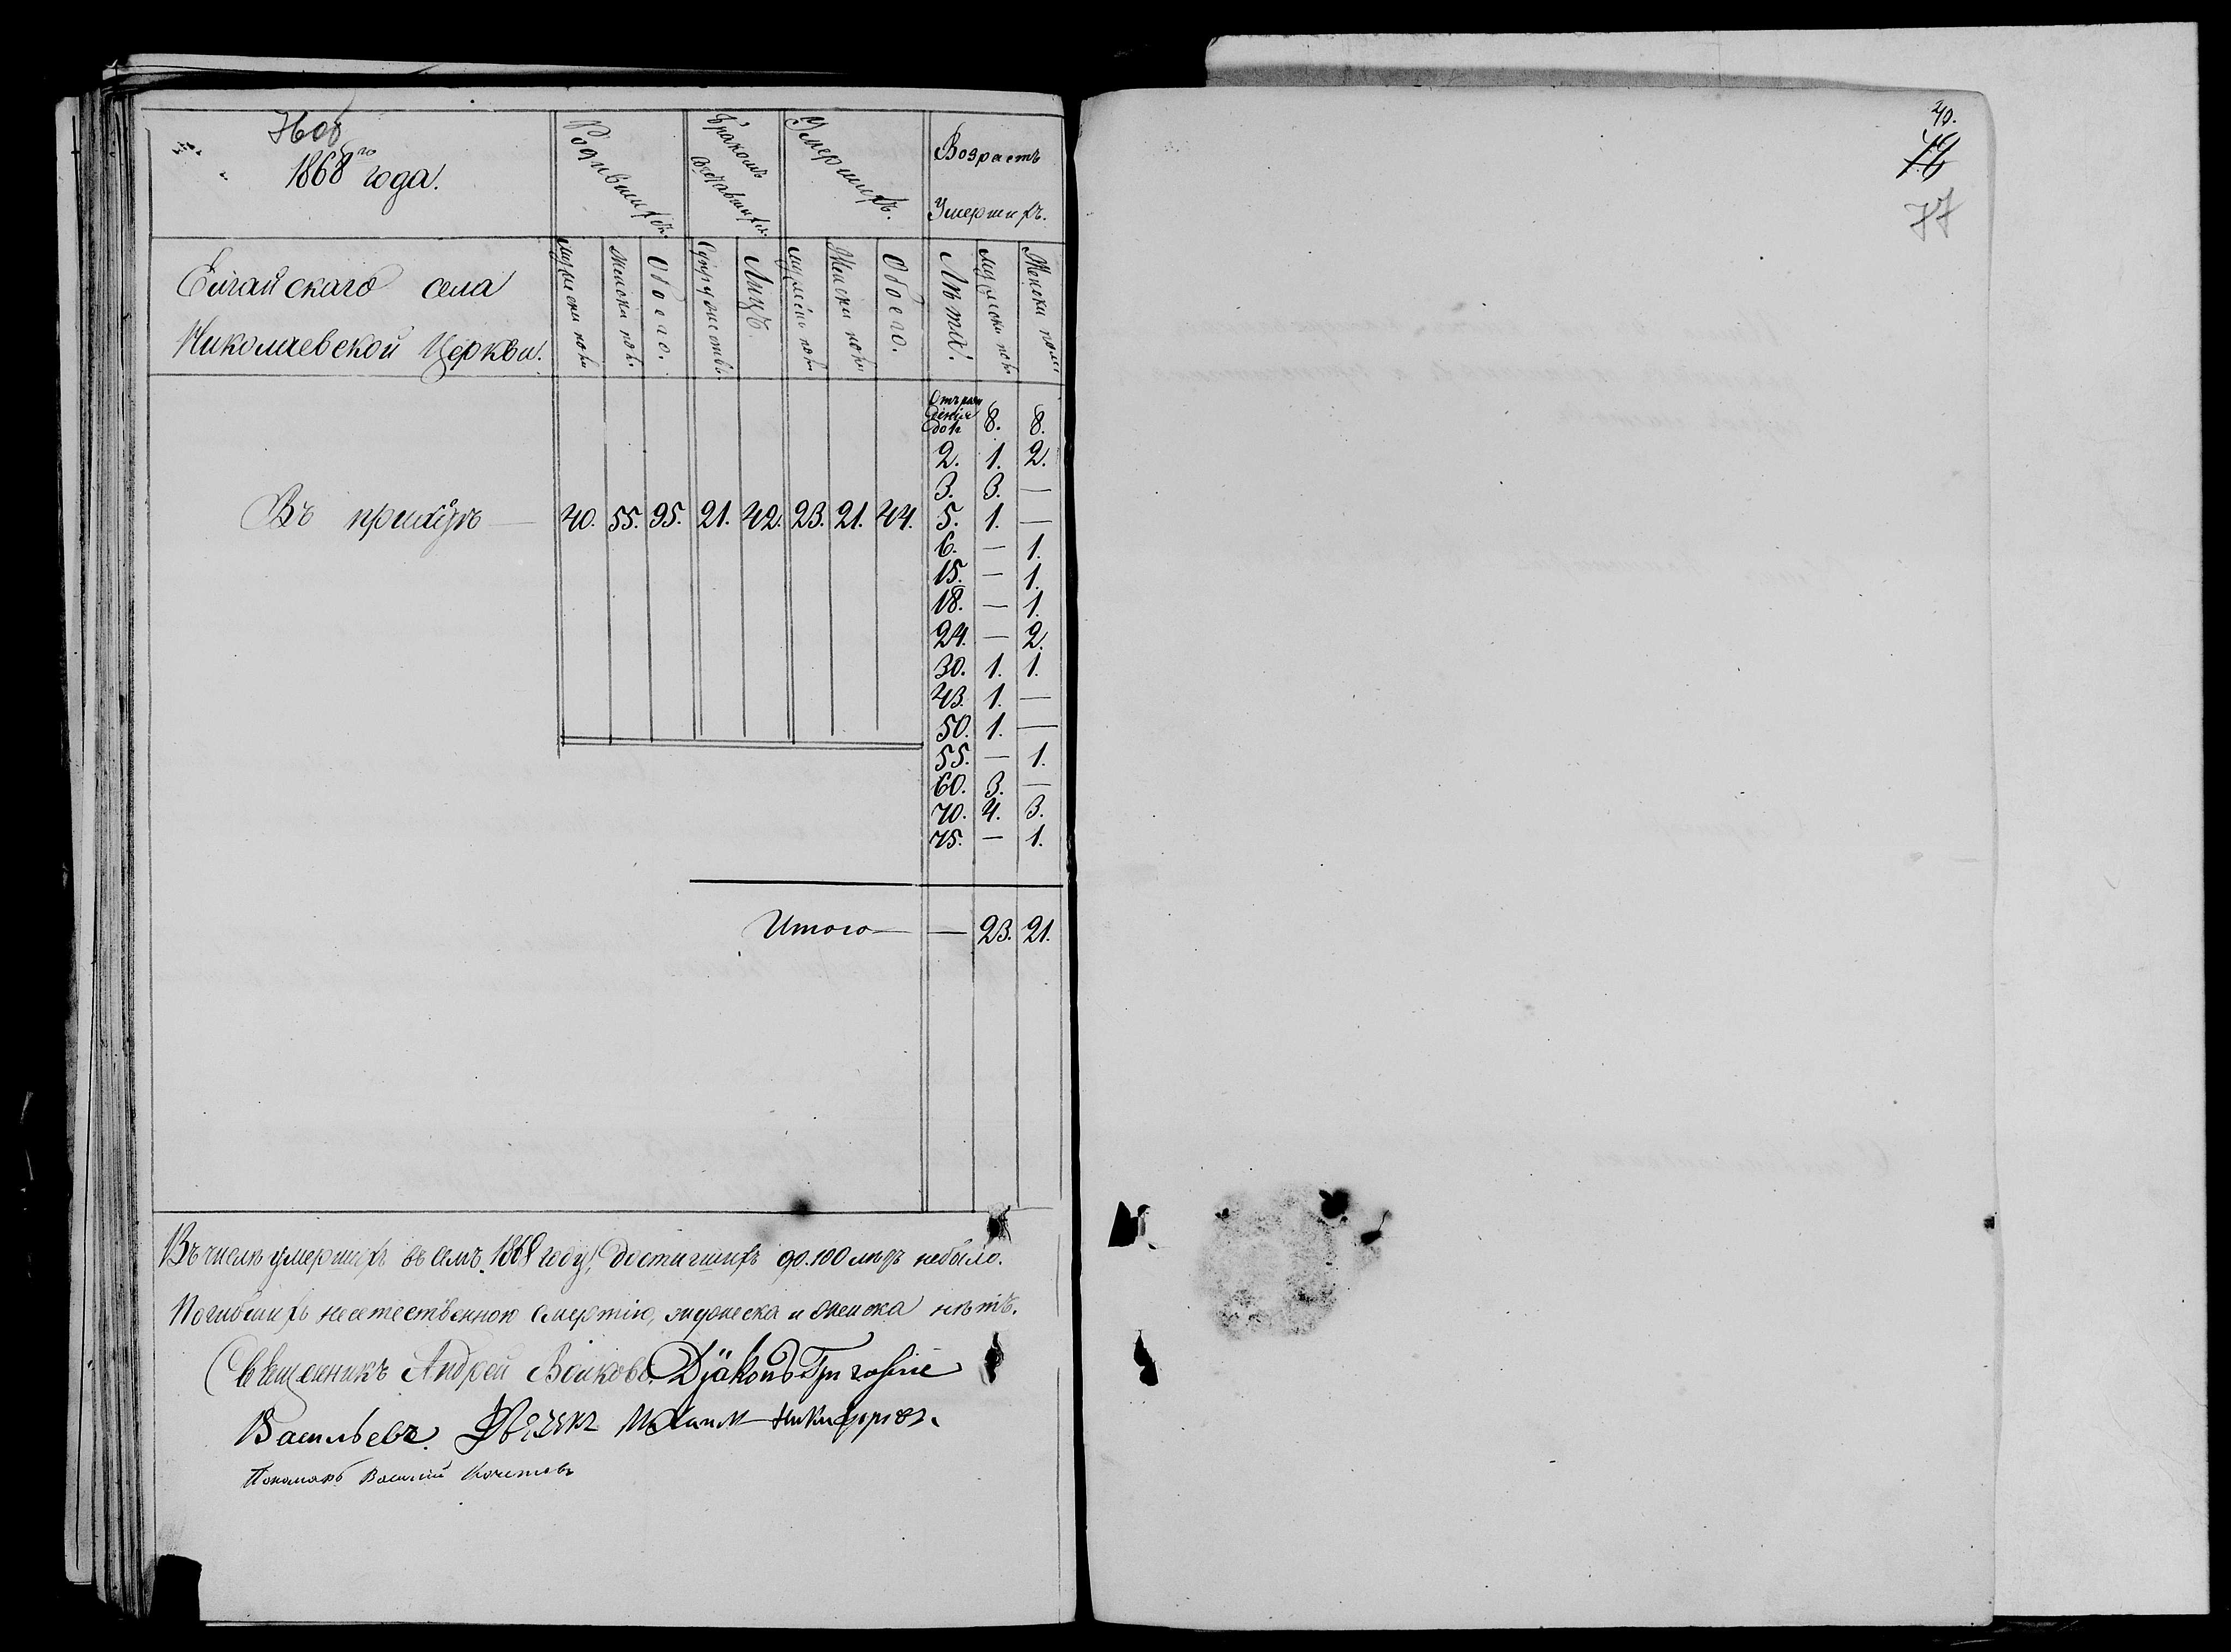 1868го года.
Родившихъ.
Бракомъ
сочетавшихся.
Умершихъ.
Возрастъ
Умершихъ.
села
Николаевской Церкви.
Мужеска пола
Женска пола
Обоего.
Супружествъ.
Лицъ.
Мужеска пола
Женска пола
Обоего.
Лѣта.
Мужеска пола
Женска пола
Отъ рож
денія
до 1 8. 8.
2. 1. 2.
3. 3. —
Въ приходѣ — 40. 55. 95. 21. 42. 23. 21. 44. 5. 1. —
6. — 1.
15. — 1.
18. — 1.
24. — 2.
30. 1. 1.
43. 1. —
50. 1. —
55. — 1.
60. 3. —
70. 4. 3.
75. — 1.
Итого — — 23. 21.
Въ числѣ умершихъ въ семъ 1868 году, достигшихъ до 100 лѣтъ небыло.
Погибшихъ неестественною смертію, мужеска и женска нѣтъ.
Священникъ Андрей Волковъ. Діаконъ Григорій
Васильевъ. Дьячекъ Никифоровъ.
Пономарь Василій Кочетовъ
40.
77